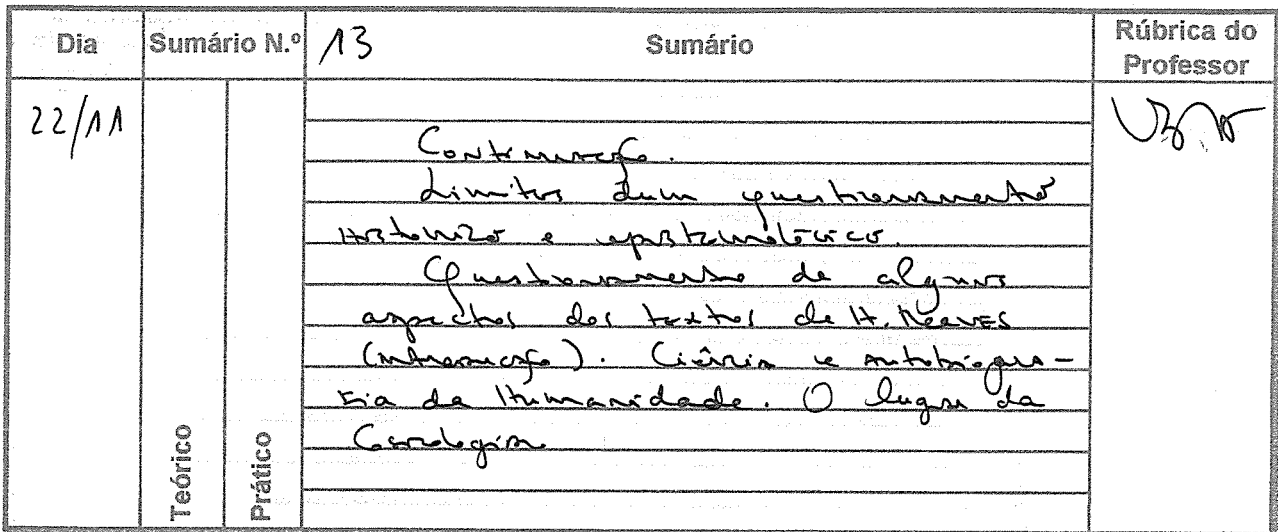 Dia Sumário N.º 13 Sumário Rúbrica do Professor
22/11
Continuação.
Limites dum questionamento
histórico e epistemológico.
Questionamento de alguns
aspectos dos textos de H. Reeves
(introdução). Ciência e autobiogra-
fia da Humanidade. O lugar da
Cosmologia
Teórico
Prático